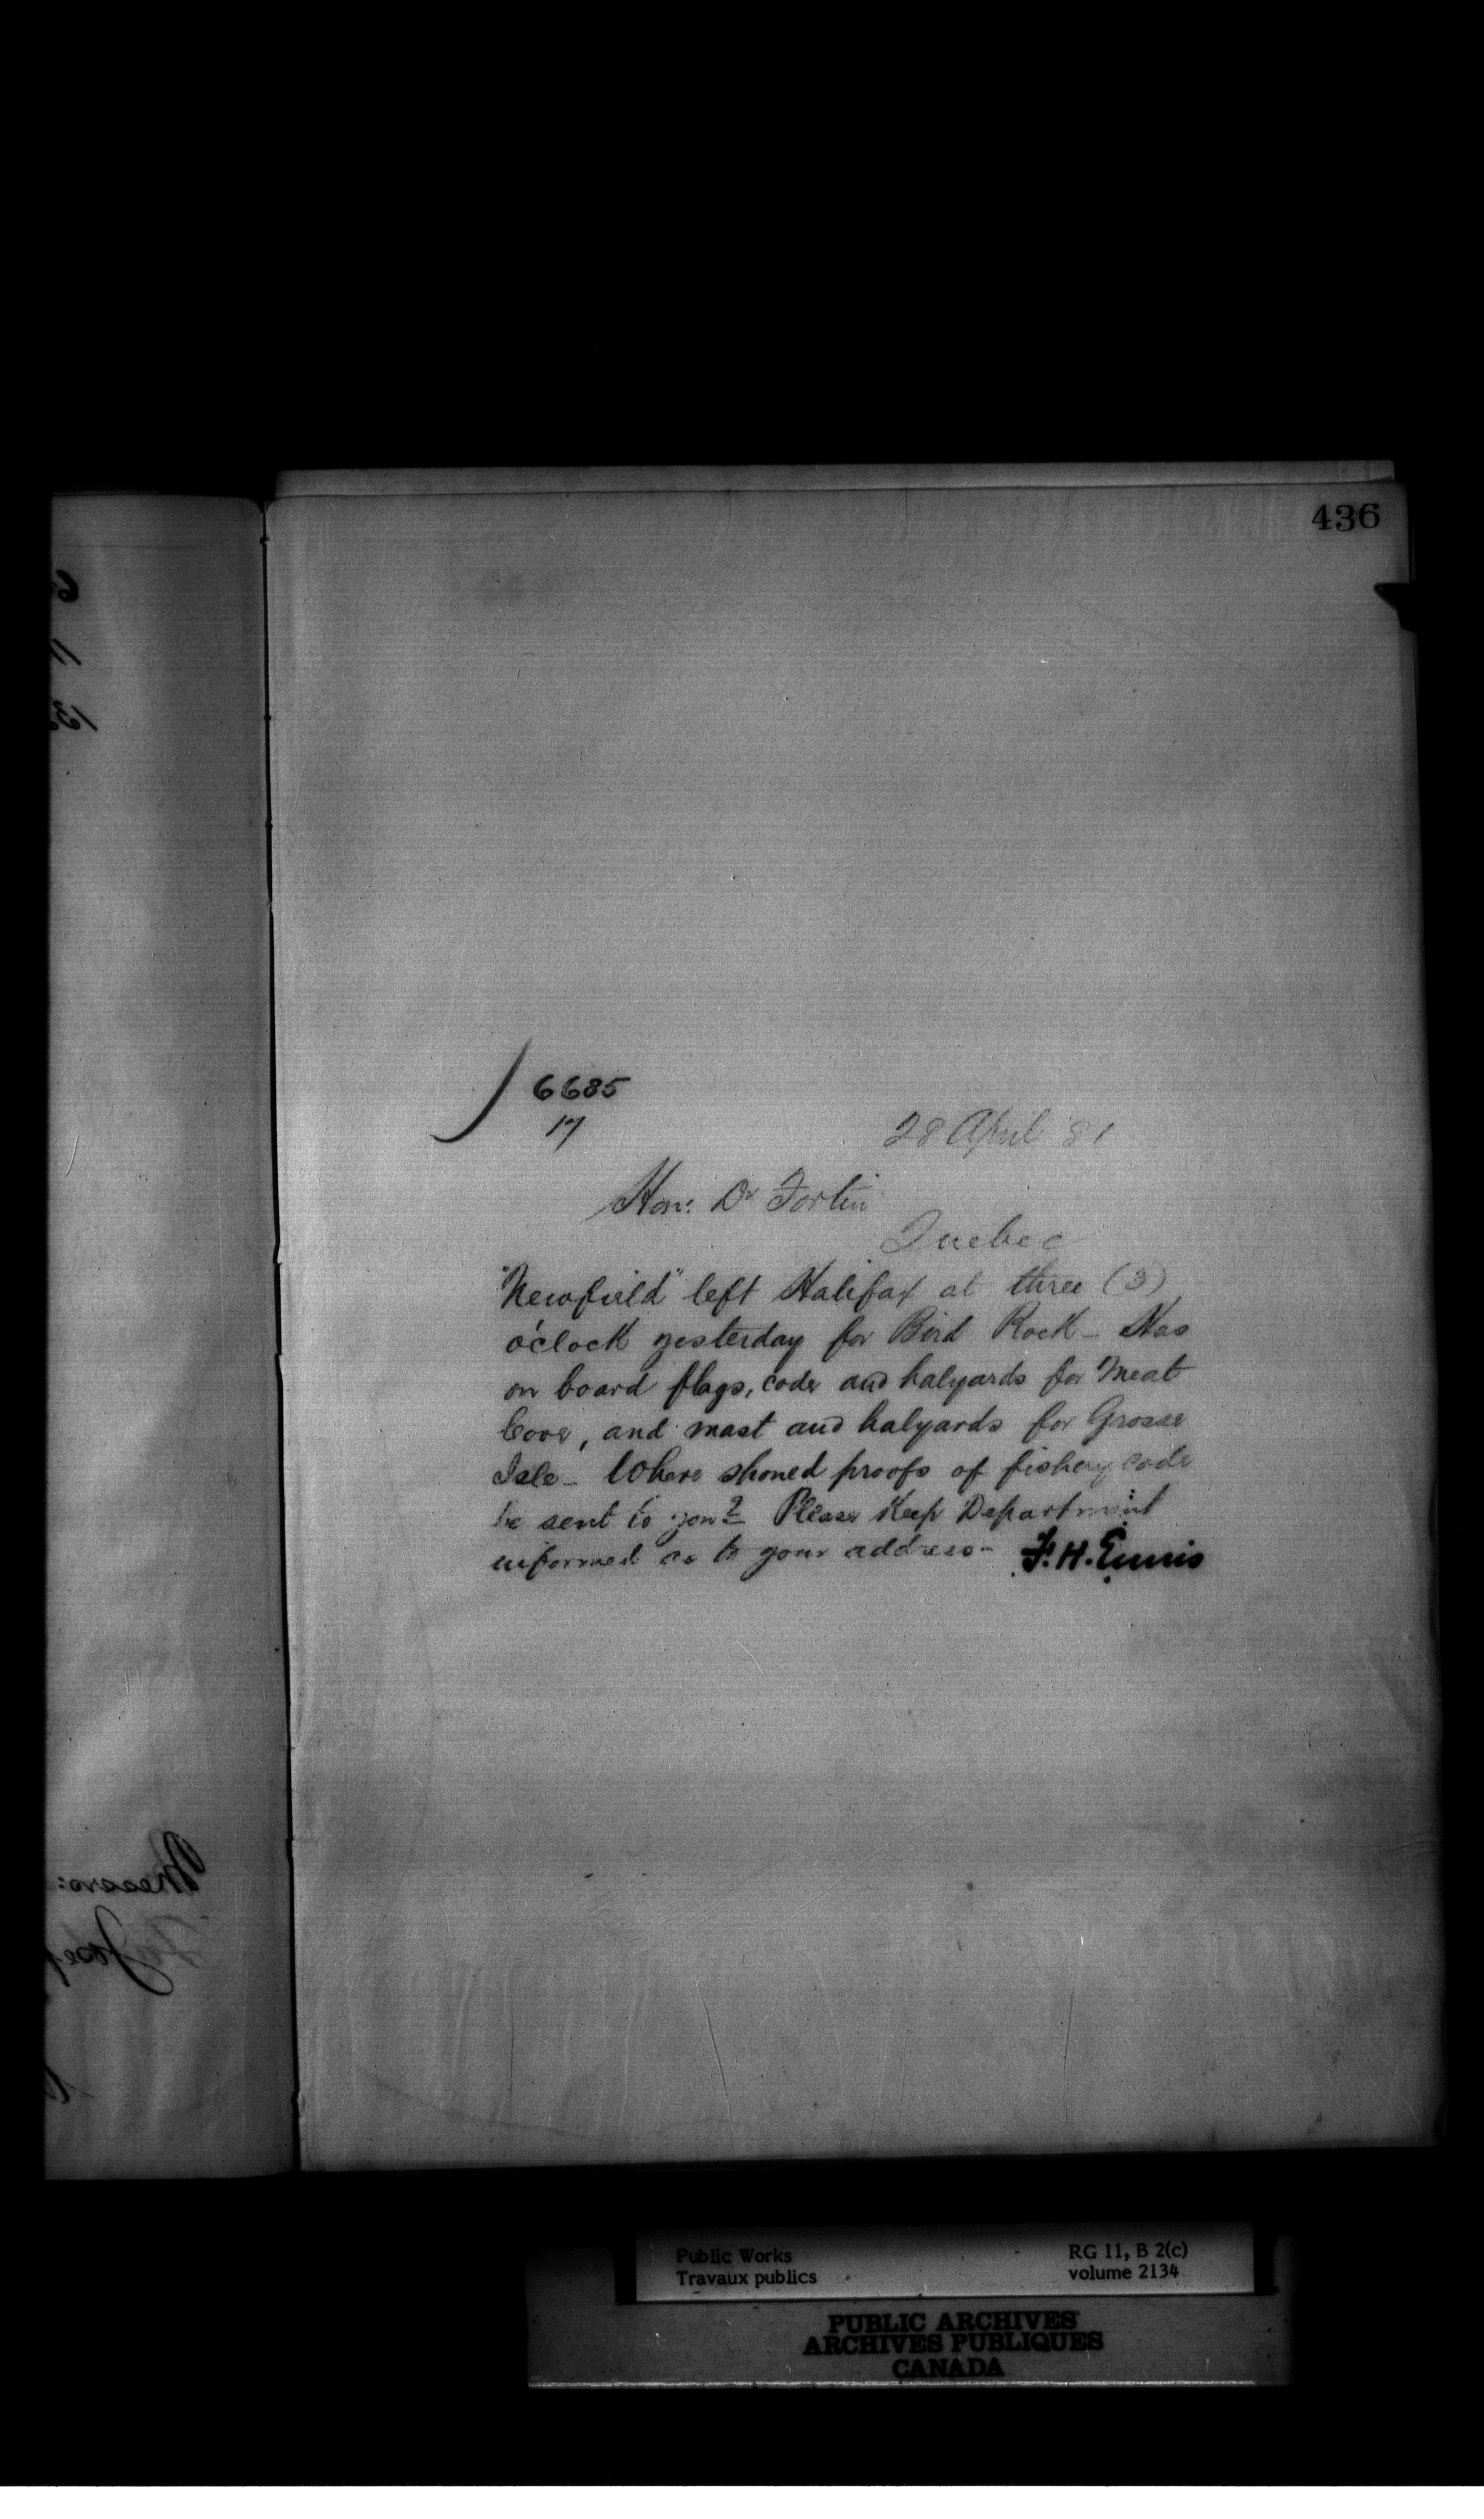 436
6685
17
28 April 81
Hon: Dr Fortin
Quebec
"Newfield" left Halifax at three (3)
o'clock yesterday for Bird Rock - Has
on board flags, code and halyards for Meat
Cove, and mast and halyards for Grosse
Isle - Where shoued proofs of fishery code
be sent to you? Please Keep Department
informed as to your address - F. H. Ennis
Public Works
Travaux publics
RG 11, B 2(c)
volume 2134
PUBLIC ARCHIVES
ARCHIVES PUBLIQUES
CANADA